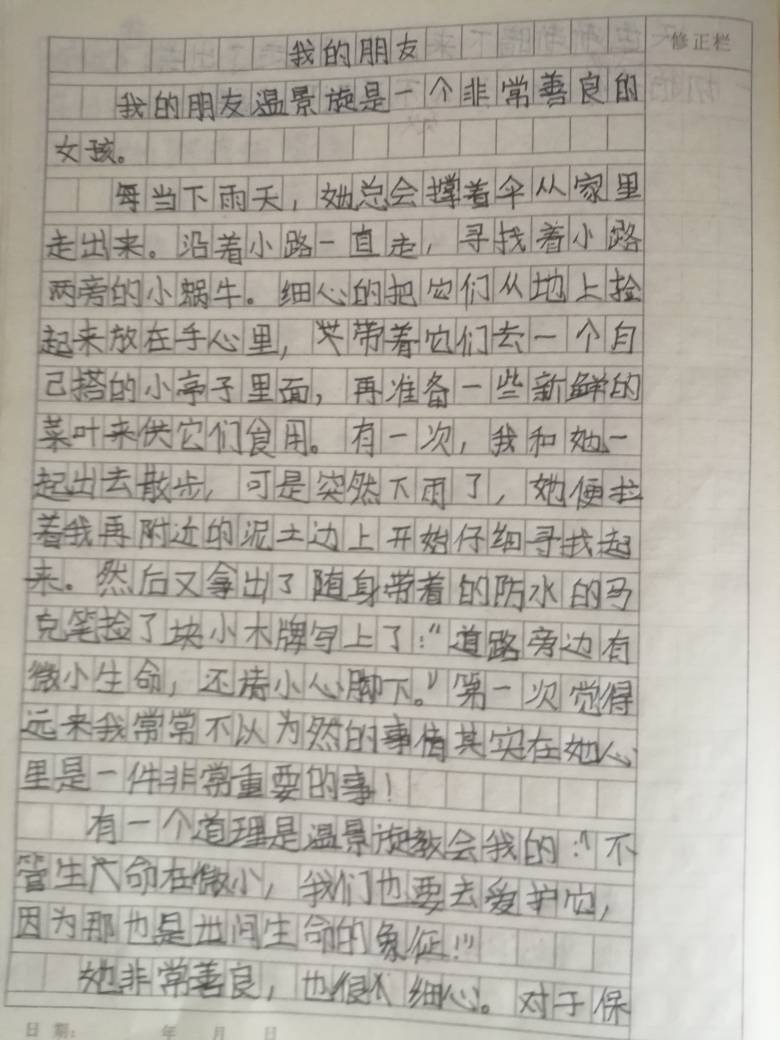 修正栏
我的朋友
我的朋友温景旋是一个非常善良的
女孩。
每当下雨天，她总会撑着伞从家里
走出来。沿着小路一直走，寻找着小路
两旁的小蜗牛。细心的把它们从地上捡
起来放在手心里，带着它们去一个自
己搭的小亭子里面，再准备一些新鲜的
菜叶来供它们食用。有一次，我和她一
起出去散步，可是突然下雨了，她便拉
着我再附近的泥土边上开始仔细寻找起
来。然后又拿出了随身带着的防水的马
克笔捡了块小木牌写上了：“道路旁边有
微小生命，还请小心脚下。”第一次觉得
远来我常常不以为然的事情其实在她心
里是一件非常重要的事！
有一个道理是温景旋教会我的：“不
管生命在微小，我们也要去爱护它，
因为那也是世间生命的象征！”
她非常善良，也很细心。对于保
日期： 年 月 日